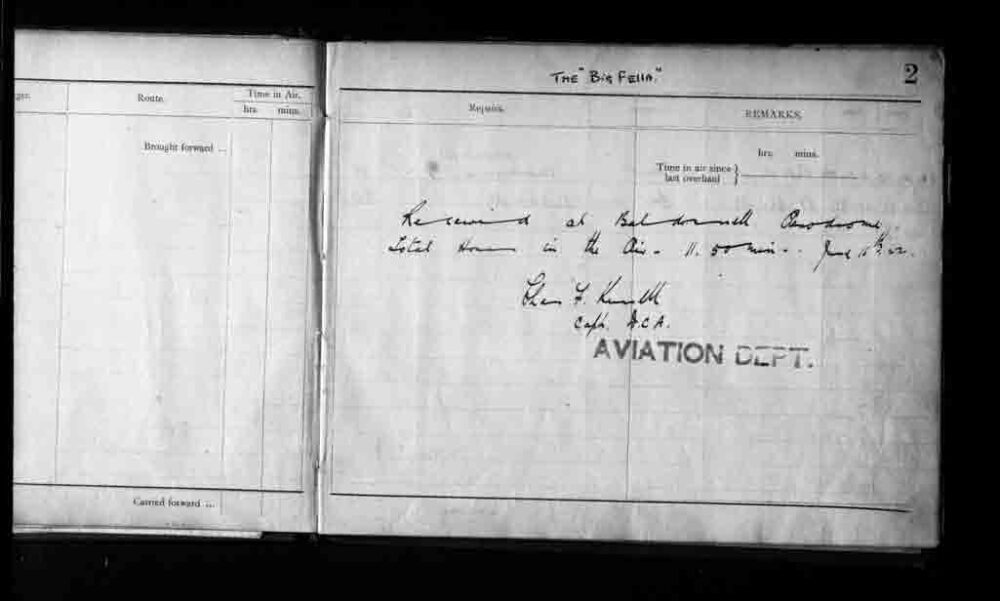 THE "BIG FELLA."
2
ger.
Route.
Time in Air.
hrs. mins.
Brought forward ...
Carried forward ...
Repairs.
REMARKS.
hrs. mins.
Time in air since
last overhaul
Received at Baldonnell Aerodrome.
Total Hours in the Air - 11. 50 min - June 16th 22.
Chas F.
Capt. A.C.A.
AVIATION DEPT.